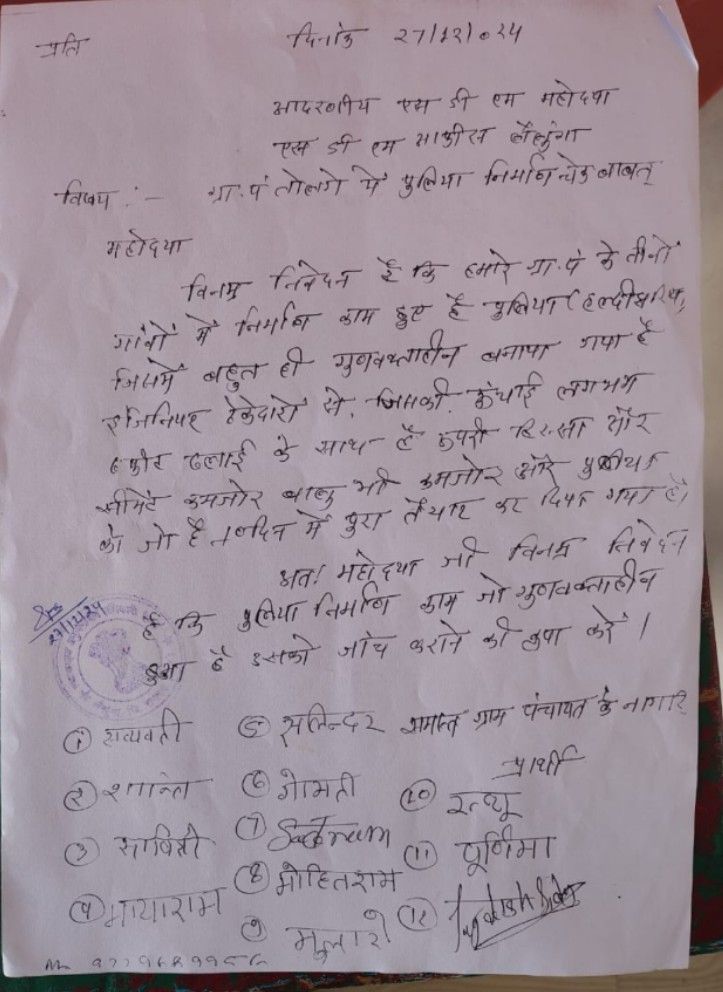 प्रति
दिनांक 27/12/024
आदरणीय एस डी एम महोदया
एस डी एम आफीस लैलुंगा
विषय :- ग्रा.पं तोलगे में पुलिया निर्माण चेक बाबत्
महोदया
विनम्र निवेदन है कि हमारे ग्रा.पं के तीनों
गांवों में निर्माण काम हुए है पुलिया
जिसमें बहुत ही गुणवक्ताहीन बनाया गया है
इंजिनियर ठेकेदारों से, जिसकी ऊंचाई लगभग
फीट ढलाई के साथ है ऊपरी हिस्सा और
सीमेंट कमजोर बालु भी कमजोर और
को जो है दिन में पुरा तैयार कर दिया गया है।
अतः महोदया जी विनम्र निवेदन
है कि पुलिया निर्माण काम जो गुणवक्ताहीन
हुआ है उसको जांच कराने की कृपा करें।
27/12/24
① सत्यवती ⑤ सलिन्दर समस्त ग्राम पंचायत के नागरि
प्रार्थी
② शान्ता ⑥ गोमती ⑩ रत्थू
③ सावित्री ⑦ ⑪ पूर्णिमा
④ मायाराम ⑧ मोहितराम
⑨ ⑫